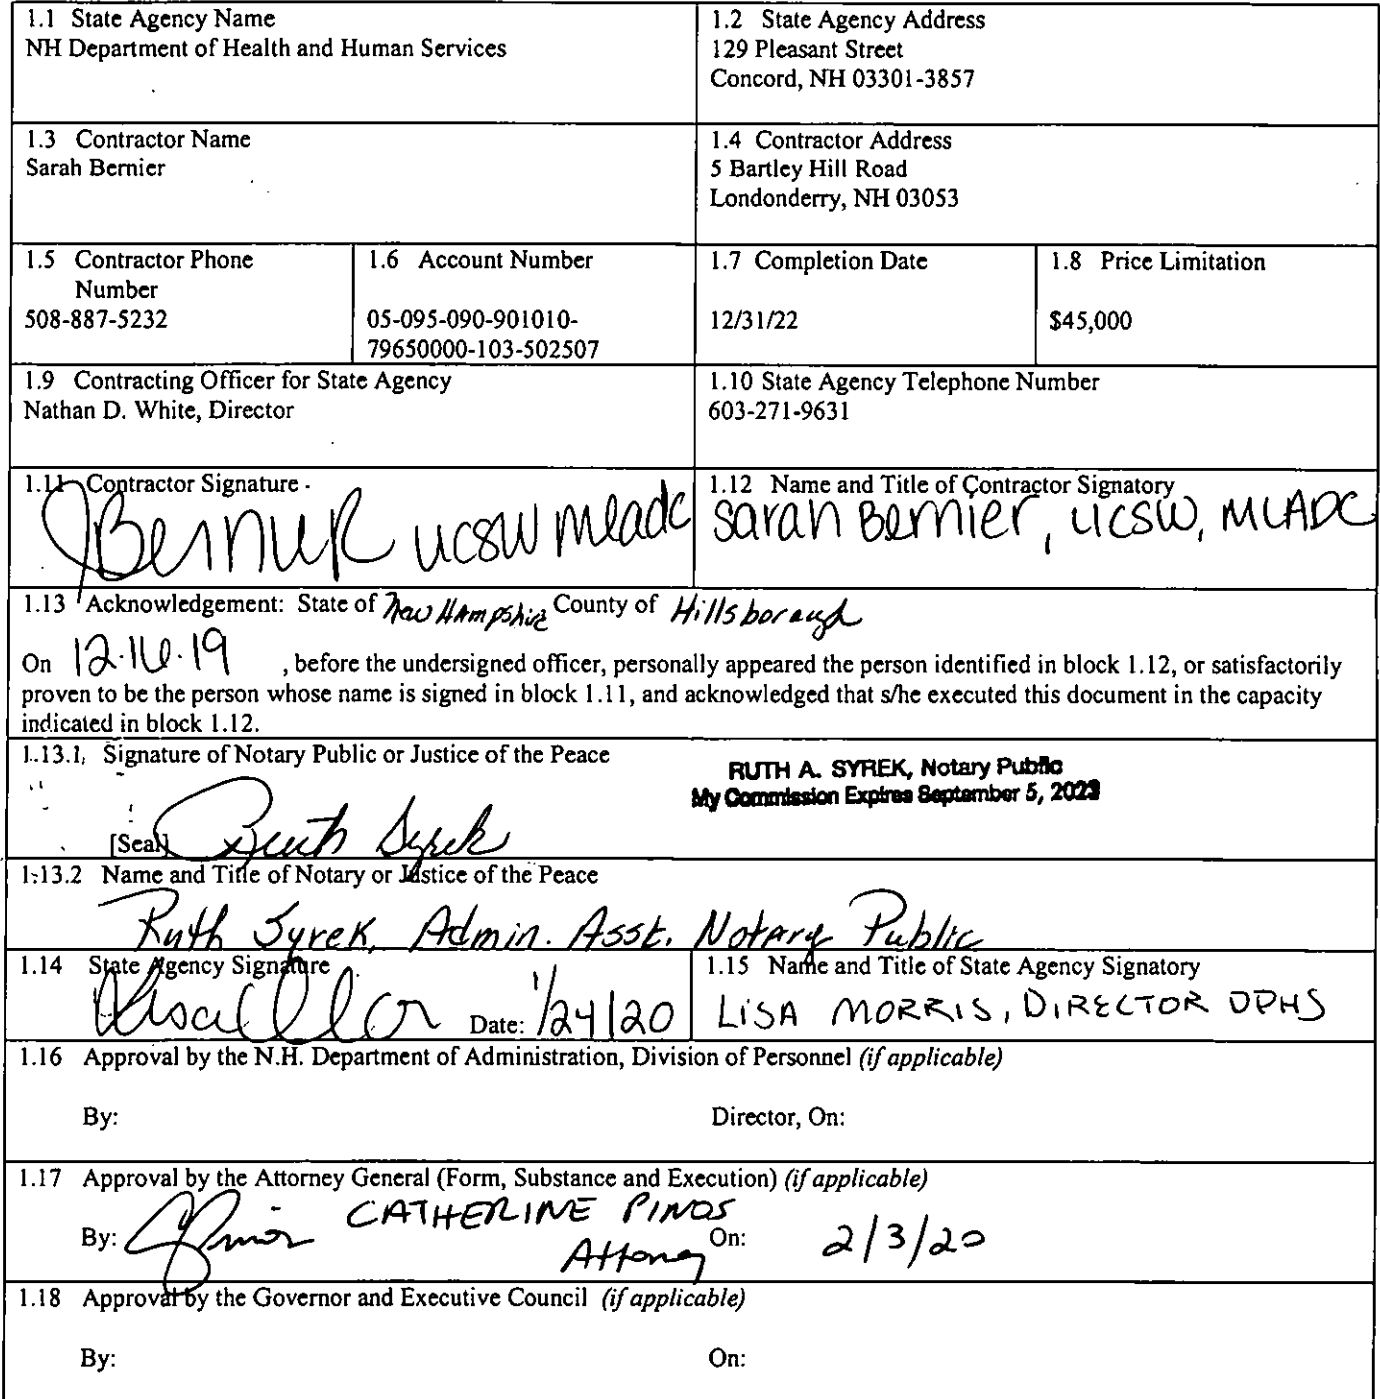 1.1 State Agency Name
NH Department of Health and Human Services
1.2 State Agency Address
129 Pleasant Street
Concord, NH 03301-3857
1.3 Contractor Name
Sarah Bernier
1.4 Contractor Address
5 Bartley Hill Road
Londonderry, NH 03053
1.5 Contractor Phone
Number
508-887-5232
1.6 Account Number
05-095-090-901010-
79650000-103-502507
1.7 Completion Date
12/31/22
1.8 Price Limitation
$45,000
1.9 Contracting Officer for State Agency
Nathan D. White, Director
1.10 State Agency Telephone Number
603-271-9631
1.11 Contractor Signature
LICSW MLADC
1.12 Name and Title of Contractor Signatory
Sarah Bernier, LICSW, MLADC
1.13 Acknowledgement: State of New Hampshire County of Hillsborough
On 12.16.19 , before the undersigned officer, personally appeared the person identified in block 1.12, or satisfactorily
proven to be the person whose name is signed in block 1.11, and acknowledged that s/he executed this document in the capacity
indicated in block 1.12.
1.13.1 Signature of Notary Public or Justice of the Peace
RUTH A. SYREK, Notary Public
My Commission Expires September 5, 2023
[Seal] Ruth Syrek
1.13.2 Name and Title of Notary or Justice of the Peace
Ruth Syrek, Admin. Asst. Notary Public
1.14 State Agency Signature
Date: 1/24/20
1.15 Name and Title of State Agency Signatory
LISA MORRIS, DIRECTOR DPHS
1.16 Approval by the N.H. Department of Administration, Division of Personnel (if applicable)
By: Director, On:
1.17 Approval by the Attorney General (Form, Substance and Execution) (if applicable)
CATHERINE PINOS
By: Attorney On: 2/3/20
1.18 Approval by the Governor and Executive Council (if applicable)
By: On: